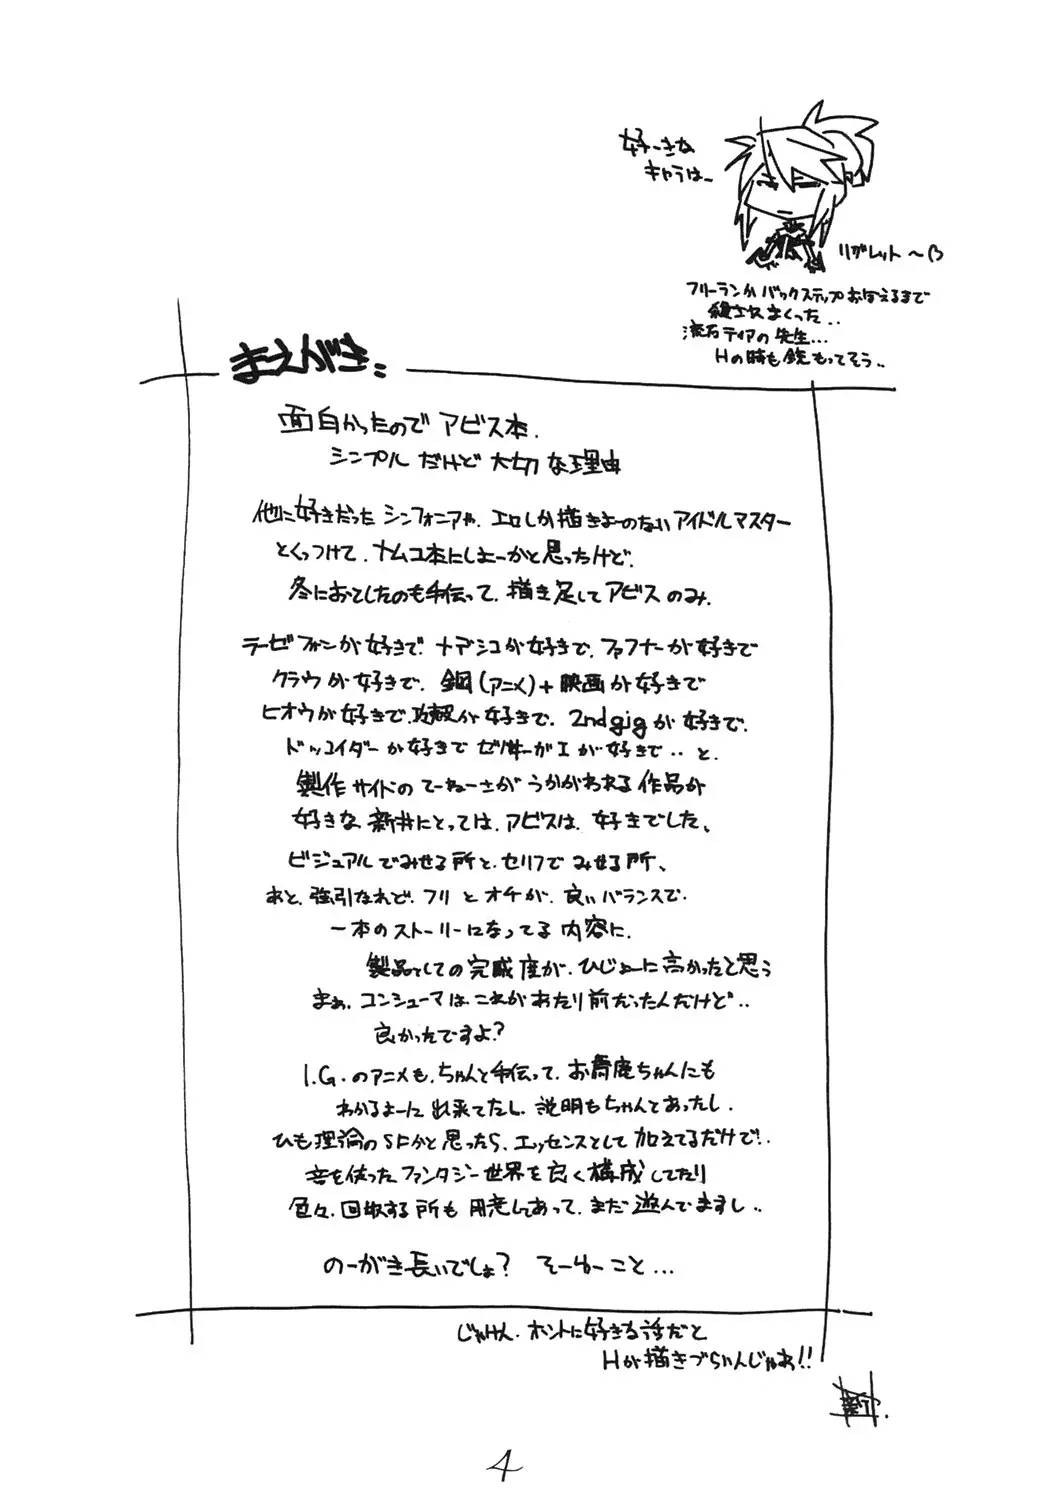 好ーきな
キャラはー
リグレット～(3
フリーランかバックステップおぼえるまで
殺されまくった..
流石ティアの先生...
Hの時も銃もってそう..
まえがき..
面白かったのでアビス本.
シンプルだけど大切な理由
他に好きだったシンフォニアや、エロしか描きよーのないアイドルマスター
とくっつけて、ナムコ本にしよーかと思ったけど、
冬におとしたのも手伝って、描き足してアビスのみ.
ラーゼフォンが好きで、ナデシコが好きで、ファフナーが好きで
クラウが好きで、鋼(アニメ)+映画が好きで
ヒオウが好きで、攻殻が好きで、2ndgigが好きで、
ドッコイダーが好きでゼノサーガIが好きで‥と、
製作サイドのてーねーさがうかがわれる作品が
好きな新井にとっては、アビスは、好きでした、
ビジュアルでみせる所と、セリフでみせる所、
あと、強引なれど、フリとオチが、良いバランスで、
一本のストーリーになってる内容に、
製品としての完成度が、ひじょーに高かったと思う
まぁ、コンシューマはこれがあたり前だったんだけど‥
良かったですよ?
I.G.のアニメも、ちゃんと手伝って、お舞庵ちゃんにも
わかるよーに出来てたし、説明もちゃんとあったし、
ひも理論のSFかと思ったら、エッセンスとして加えてるだけで‥
音を使ったファンタジー世界を良く構成してたり
色々、回収する所も用意してあって、まだ遊んでますし‥
のーがき長いでしょ? そーゆーこと...
じゃけん、ホントに好きな話だと
Hが描きづらいんじゃあ!!
4